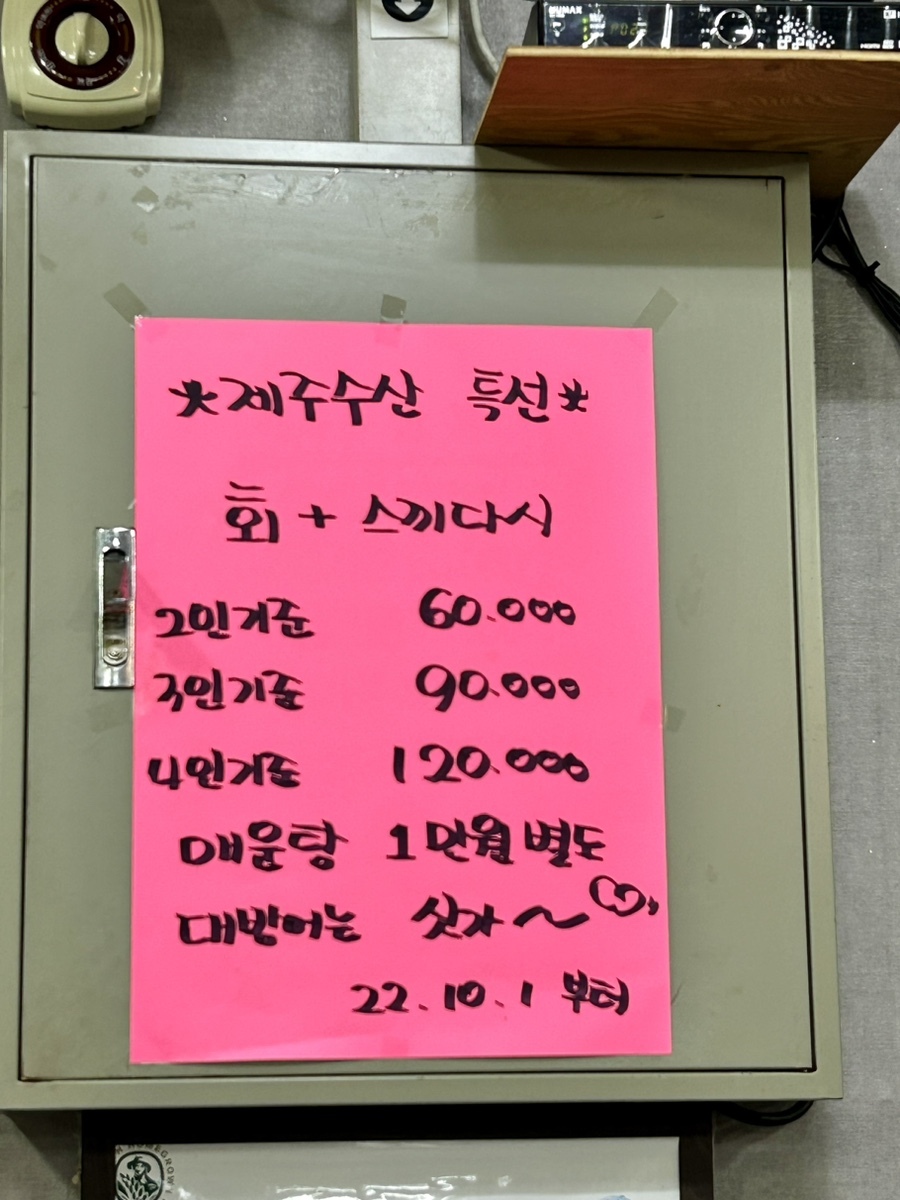 HUMAX
*제주수산 특선*
회 + 스끼다시
2인기준 60.000
3인기준 90.000
4인기준 120.000
매운탕 1만원 별도
대방어는 싯가~
22.10.1 부터
HOMEGROW